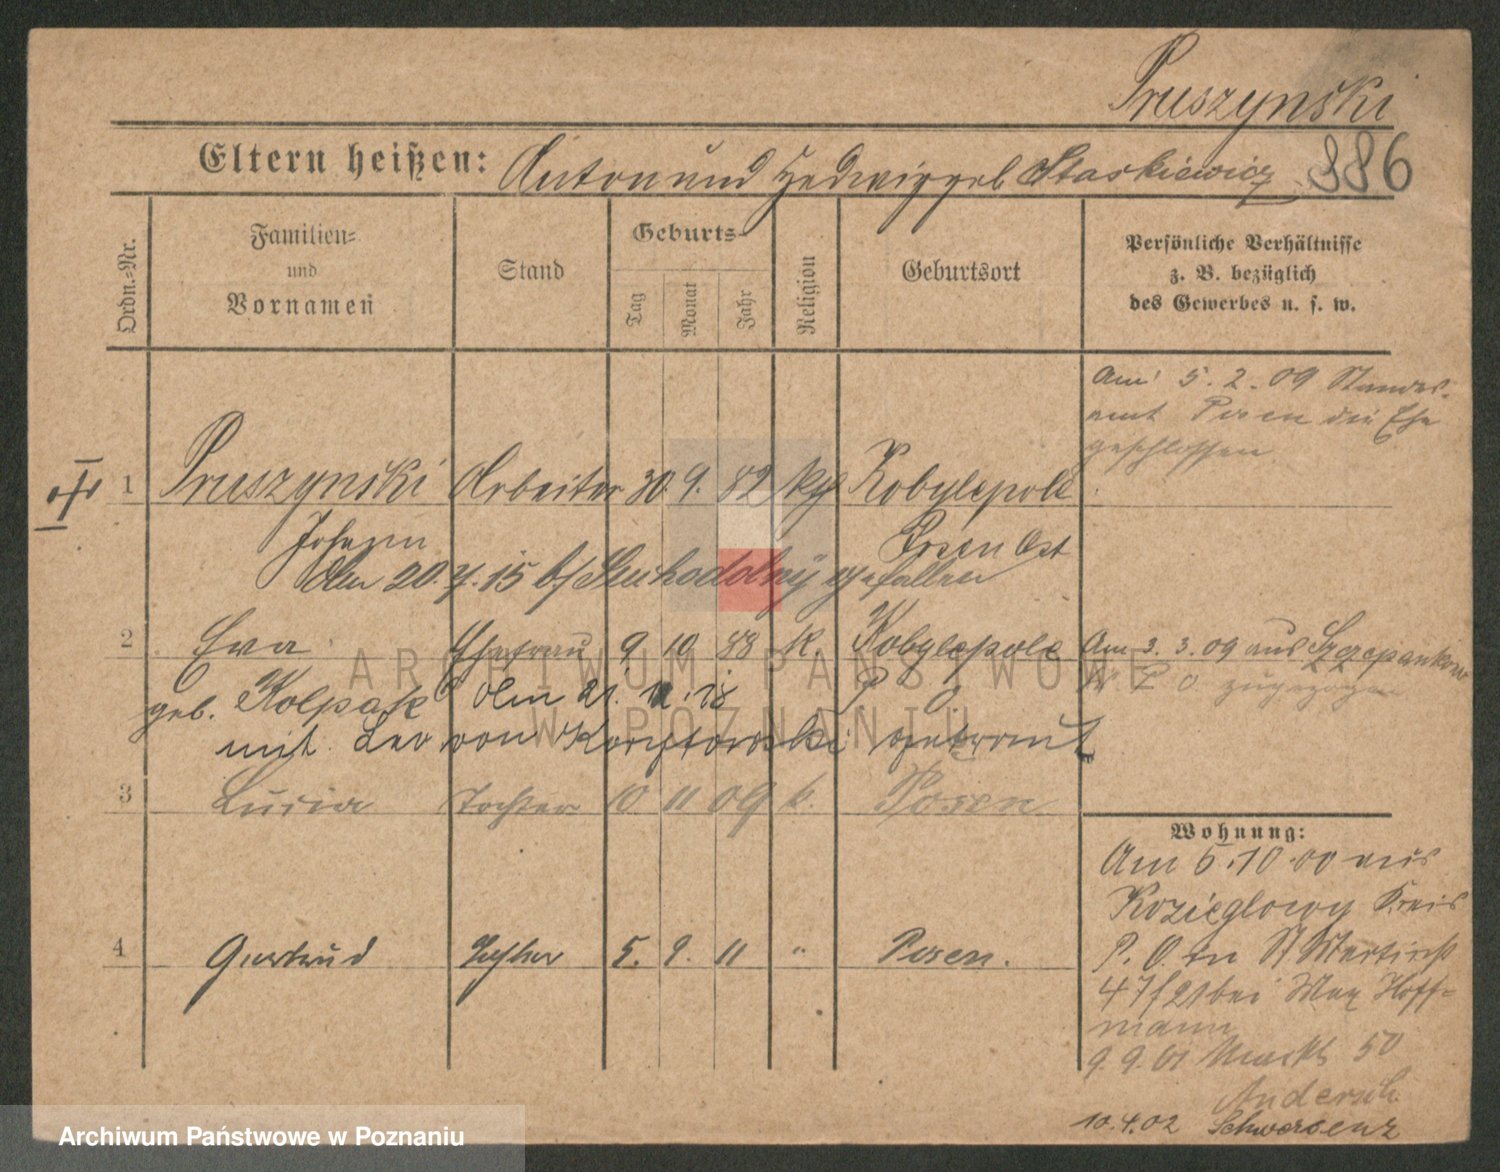 Pruszynski
Eltern heißen: Anton und Hedwig geb Staskiewicz 386
Ordn.-Nr.
Familien-
und
Vornamen
Stand
Geburts-
Tag
Monat
Jahr
Religion
Geburtsort
Persönliche Verhältnisse
z. B. bezüglich
des Gewerbes u. s. w.
Am 5.2.09 Standes-
amt Posen die Ehe
geschlossen
1 Pruszynski Arbeiter 30 9. 82 kth Kobylepole
Johann Posen Ost
Am 20.7.15 b/ gefallen
2 Eva Ehefrau 9 10 88 k. Kobylepole Am 3.3.09 aus Szczepankowo
geb. Kolpak Am 21. 12. 18 P O Kr P O zugezogen
mit Leo von getraut
3 Lucia Tochter 10 11 09 k. Posen
Wohnung:
Am 5.10.00 aus
Kozieglowy Kreis
P. O. in St Martinst
47/21 bei Max Hoff-
mann
4 Gertrud Tochter 5. 9. 11 " Posen.
9.9.01 Markt 50
Andersch
10.4.02 Schwersenz
ARCHIWUM PAŃSTWOWE
W POZNANIU
Archiwum Państwowe w Poznaniu